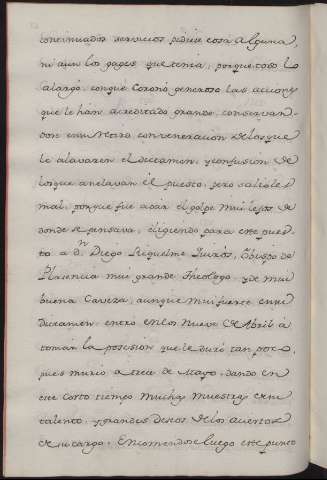 continuados servicios pedirle cosa alguna,
ni aun los gages que tenia, porque todo lo
alargò, conque coronò generoso las acciones
que le han acreditado grande, conservan-
dose en su retiro, con veneracion de los que
le alavaron el dictamen, y confusion de
los que anelavan el puesto, pero salioles
mal, porque fue a dar el golpe mui lejos de
donde se pensava, eligiendo para este pues-
to a Dn. Diego Riquelme Quirós, Obispo de
Plasencia mui grande Theologo, y de mui
buena Caveza, aunque mui fuerte en su
dictamen, entrò en los nueve de Abril à
tomar la posesion que le durò tan poco,
pues murio a trece de Mayo, dando en
este corto tiempo muchas muestras de su
talento, y grandes deseos de los aciertos
de su cargo. Encomendose luego este puesto